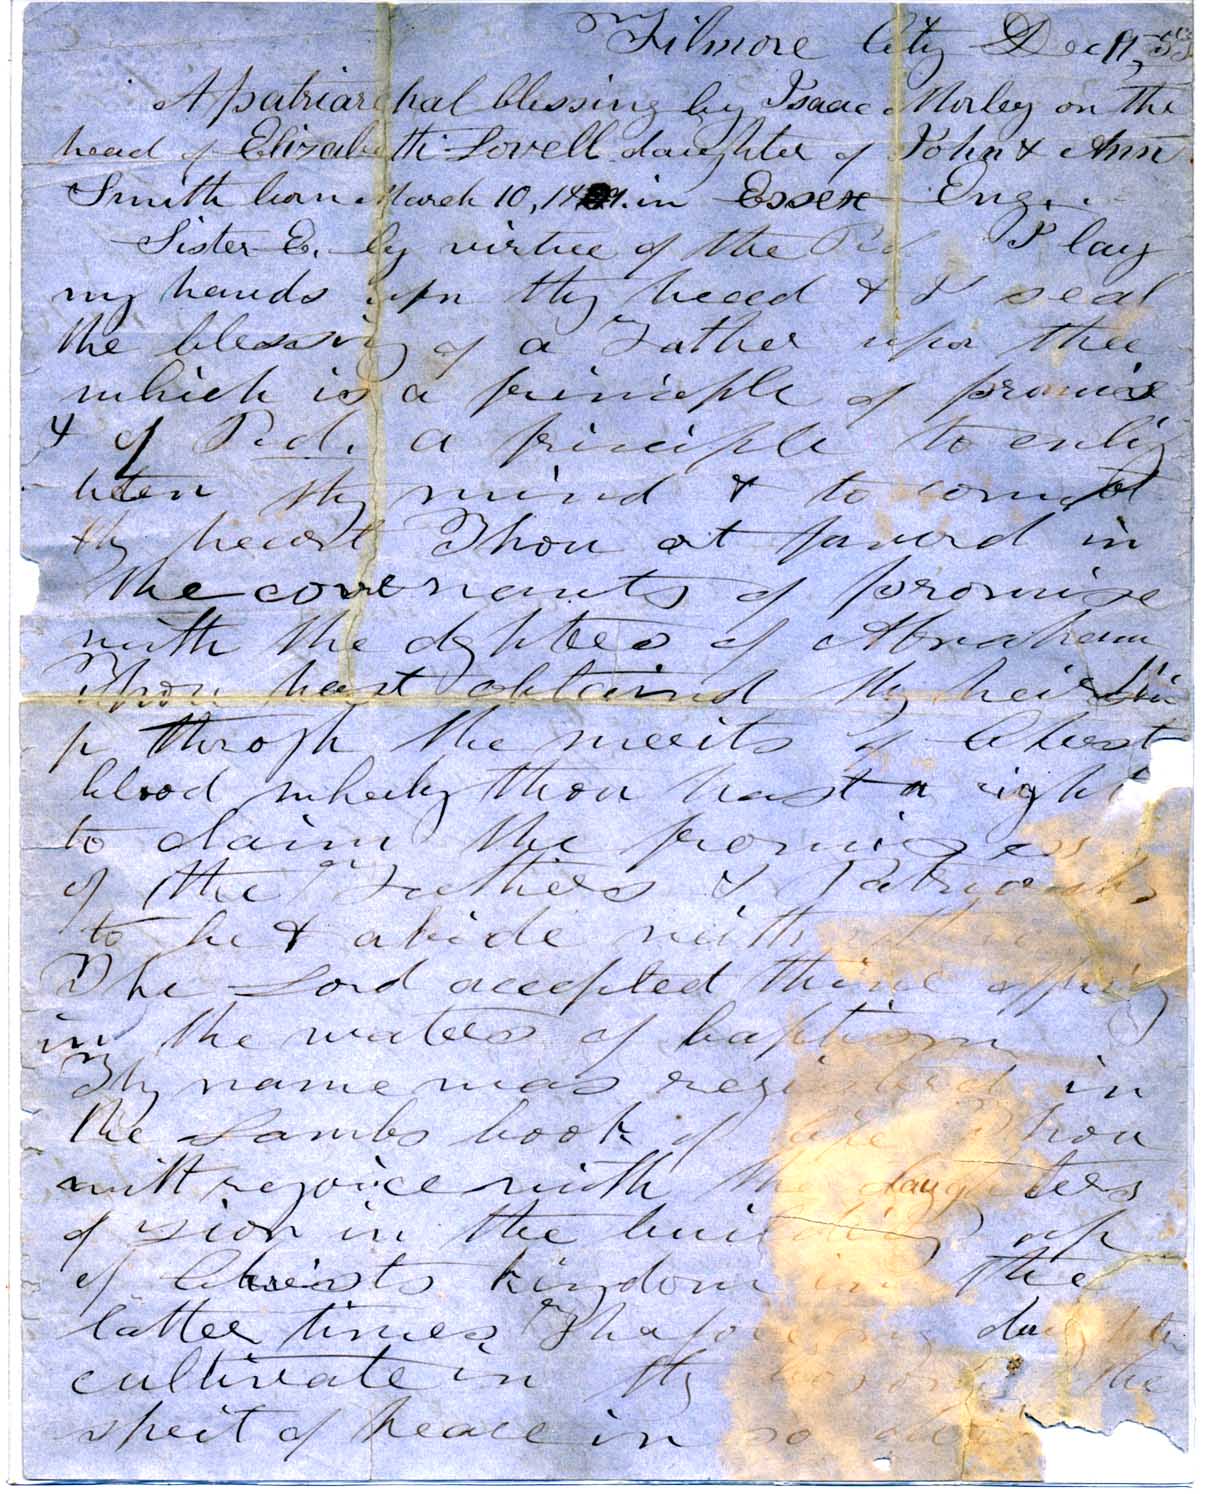 Filmore City Dec 9, 55
A patriarchal blessing by Isaac Morley on the
head of Elizabeth Lovell daughter of John & Ann
Smith born March 10, in Essex Eng.
Sister E. by virtue of the P.d I lay
my hands upn thy head & I seal
the blessing of a Father upon thee
which is a principle of promise
& of P.d. a principle to enlig
hten thy mind & to comfot
thy heart Thou at favord in
the covenants of promise
with the dghters of Abraham
Thou hast obtaind thy heirshi
p throgh the merits of Christ
blood wherby thou hast a right
to claim the promises
of the Fathers & Patriarchs
to be & abide with
The Lord accepted thine offring
in the waters of baptism
Thy name was registerd in
the Lambs book of life Thou
wilt rejoice with the daughters
of Zion in the building up
of Christs kingdom in the
latter times Thafore my daughter
cultivate in thy bosom the
speit of peace in so